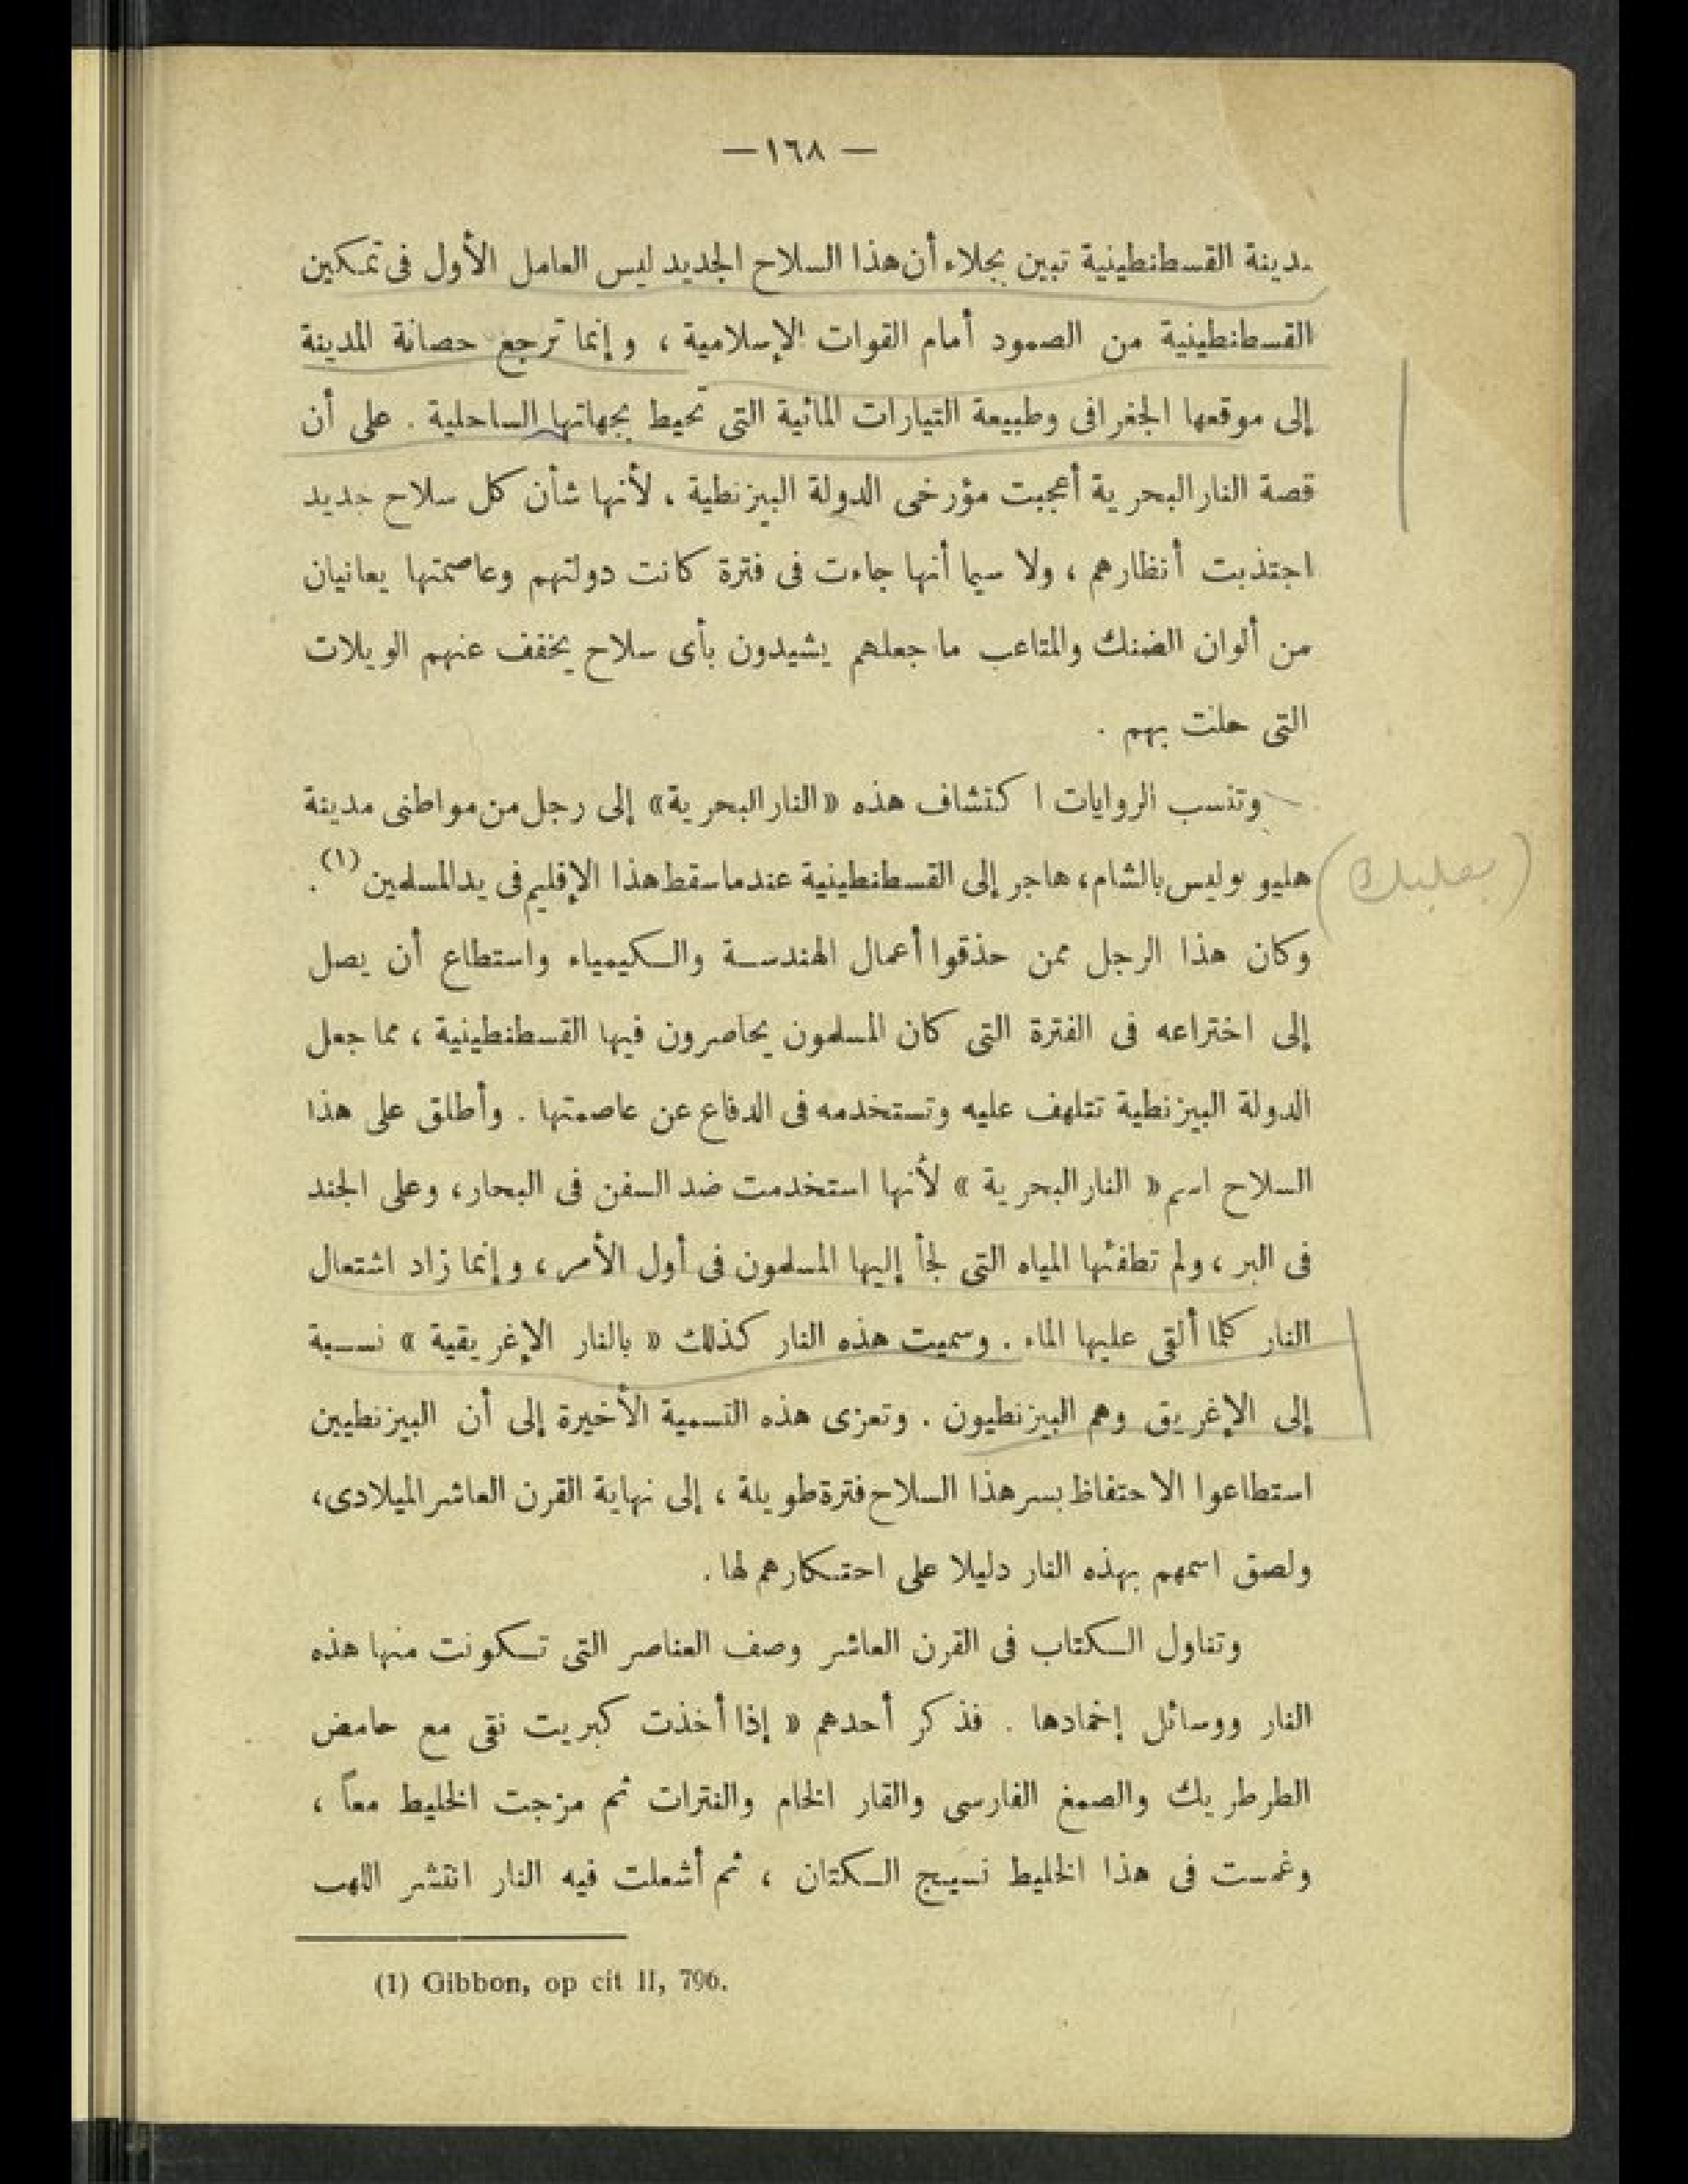 — ١٦٨ —
مدينة القسطنطينية تبين بجلاء أن هذا السلاح الجديد ليس العامل الأول فى تمكين
القسطنطينية من الصمود أمام القوات الإسلامية ، وإنما ترجع حصانة المدينة
إلى موقعها الجغرافى وطبيعة التيارات المائية التى تحيط بجهاتها الساحلية . على أن
قصة النار البحرية أعجبت مؤرخى الدولة البيزنطية ، لأنها شأن كل سلاح جديد
اجتذبت أنظارهم ، ولا سيما أنها جاءت فى فترة كانت دولتهم وعاصمتها يعانيان
من ألوان الضنك والمتاعب ما جعلهم يشيدون بأى سلاح يخفف عنهم الويلات
التى حلت بهم .
وتنسب الروايات اكتشاف هذه «النار البحرية» إلى رجل من مواطنى مدينة
هليو بوليس بالشام، هاجر إلى القسطنطينية عندما سقط هذا الإقليم فى يد المسلمين (١).
(بعلبك)
وكان هذا الرجل ممن حذقوا أعمال الهندسة والكيمياء واستطاع أن يصل
إلى اختراعه فى الفترة التى كان المسلمون يحاصرون فيها القسطنطينية ، مما جعل
الدولة البيزنطية تتلهف عليه وتستخدمه فى الدفاع عن عاصمتها . وأطلق على هذا
السلاح اسم « النار البحرية » لأنها استخدمت ضد السفن فى البحار، وعلى الجند
فى البر ، ولم تطفئها المياه التى لجأ إليها المسلمون فى أول الأمر ، وإنما زاد اشتعال
النار كلما ألقى عليها الماء . وسميت هذه النار كذلك « بالنار الإغريقية » نسبة
إلى الإغريق وهم البيزنطيون . وتعزى هذه التسمية الأخيرة إلى أن البيزنطيين
استطاعوا الاحتفاظ بسر هذا السلاح فترة طويلة ، إلى نهاية القرن العاشر الميلادى،
ولصق اسمهم بهذه النار دليلا على احتكارهم لها .
وتناول الكتاب فى القرن العاشر وصف العناصر التى تكونت منها هذه
النار ووسائل إخمادها . فذكر أحدهم « إذا أخذت كبريت نقى مع حامض
الطرطريك والصمغ الفارسى والقار الخام والنترات ثم مزجت الخليط معاً ،
وغمست فى هذا الخليط نسيج الكتان ، ثم أشعلت فيه النار انتشر اللهب
(1) Gibbon, op cit II, 796.